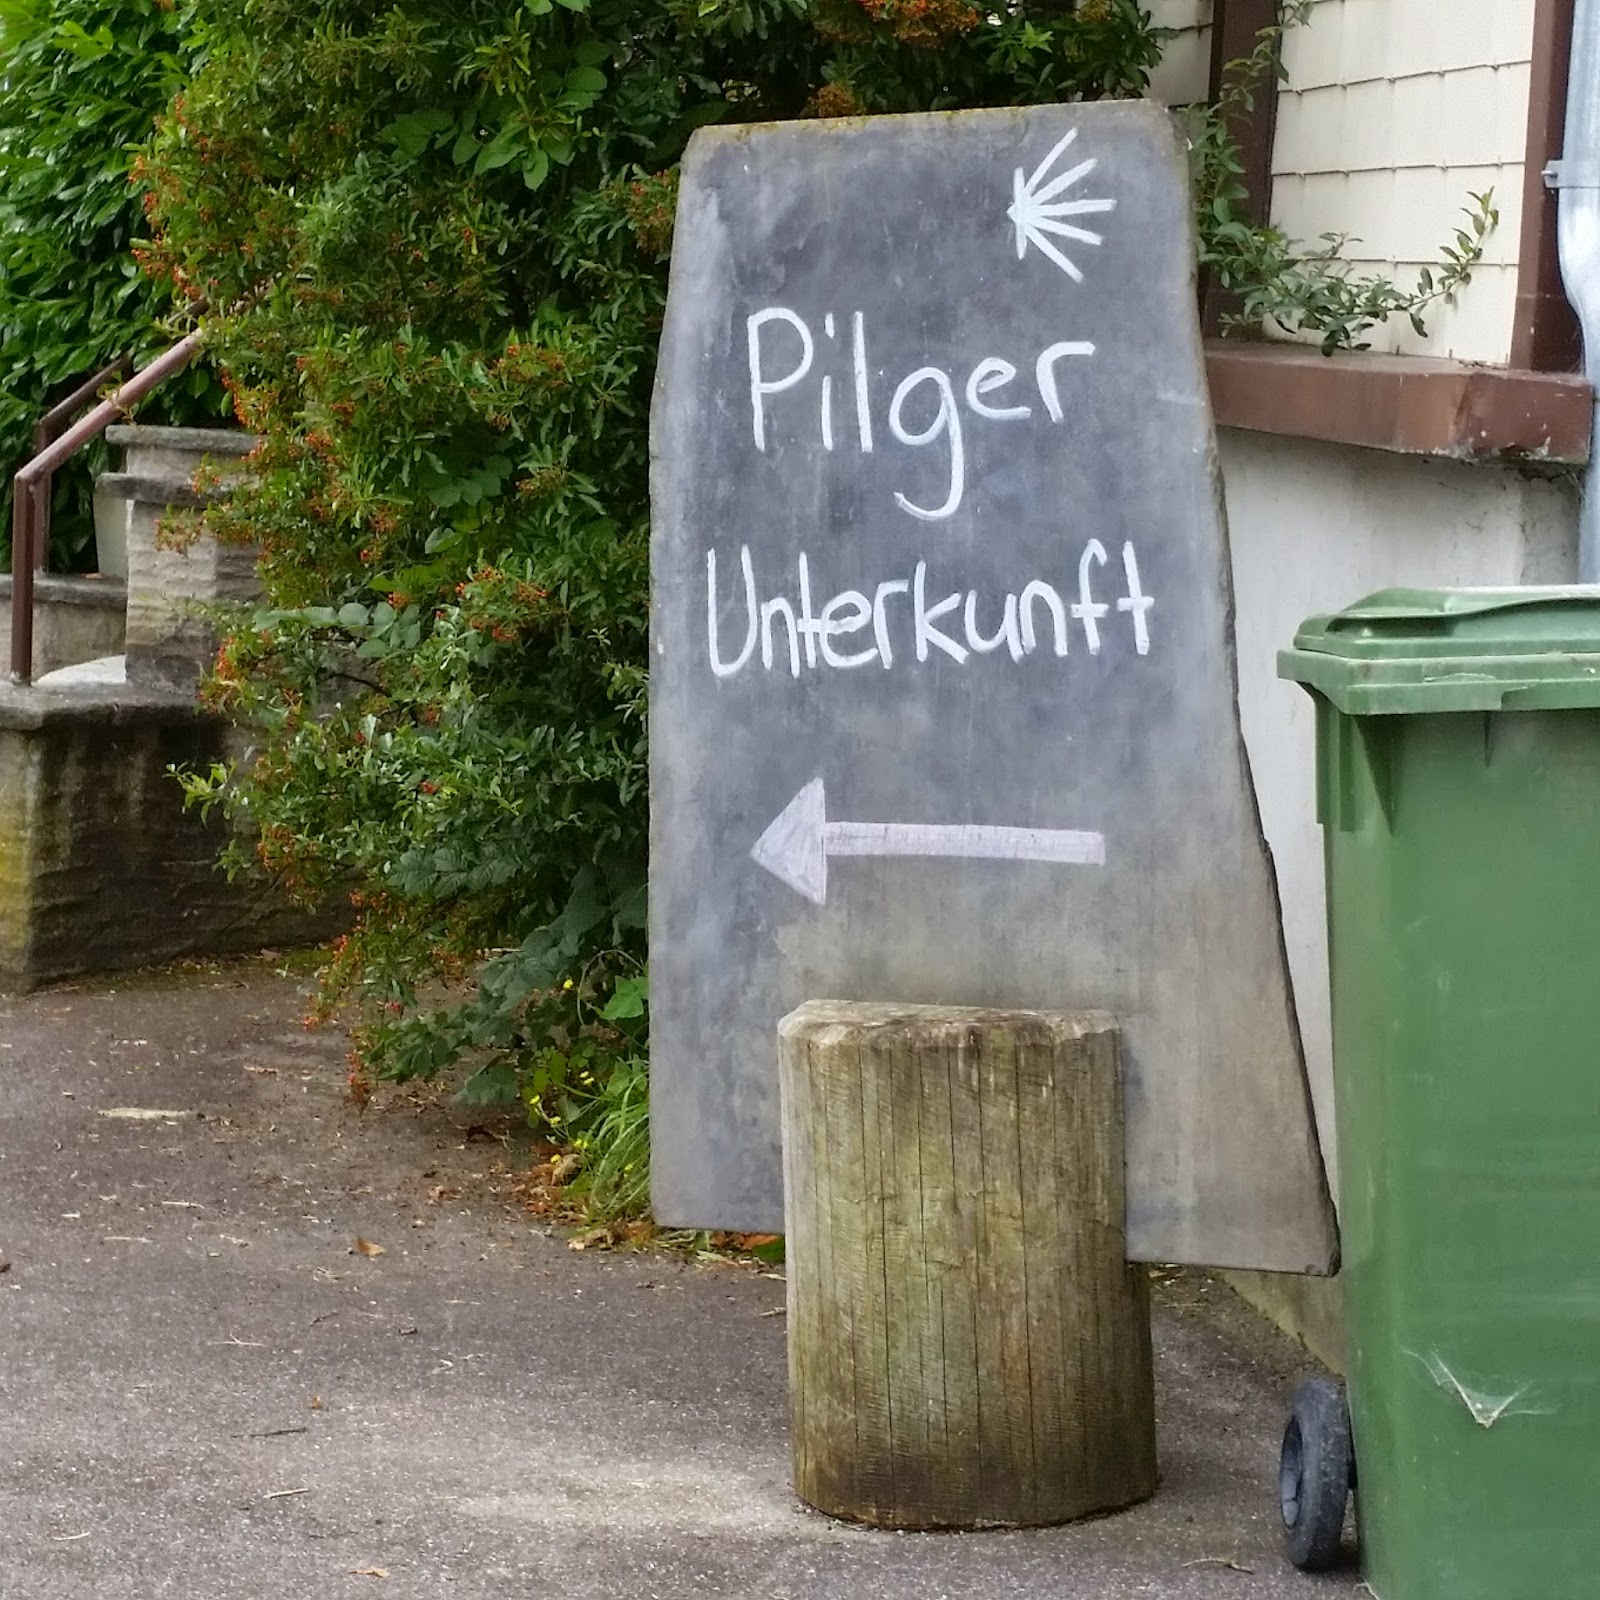 Pilger
Unterkunft